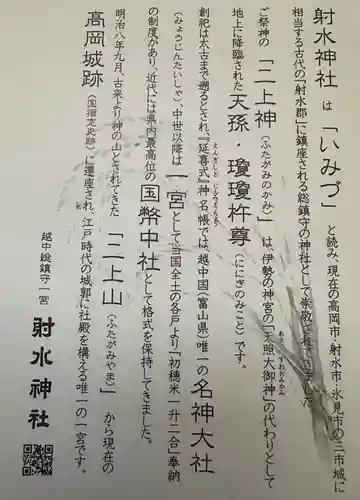 射水神社 は「いみづ」と読み、現在の高岡市・射水市・氷見市の三市域に
相当する古代の「射水郡」に鎮座される総鎮守の神社として崇敬されてきました。
ご祭神の「二上神（ふたがみのかみ）」は、伊勢の神宮の「天照大御神」の代わりとして
地上に降臨された天孫・瓊瓊杵尊（ににぎのみこと）です。
創祀は太古まで遡るとされ、『延喜式』神名帳では、越中国（富山県）唯一の名神大社
（みょうじんたいしゃ）、中世以降は一宮として当国全土の各戸より「初穂米一升二合」奉納
の制度があり、近代には県内最高位の国幣中社として格式を保持してきました。
明治八年九月、古来より神の山とされてきた「二上山（ふたがみやま）」から現在の
高岡城跡（国指定史跡）に遷座され、江戸時代の城郭に社殿を構える唯一の一宮です。
越中総鎮守一宮
射水神社